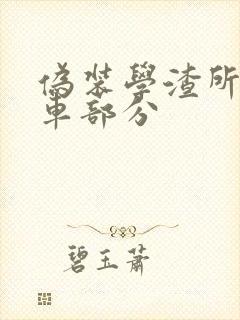 偽裝學渣所
車部分
碧玉蕭